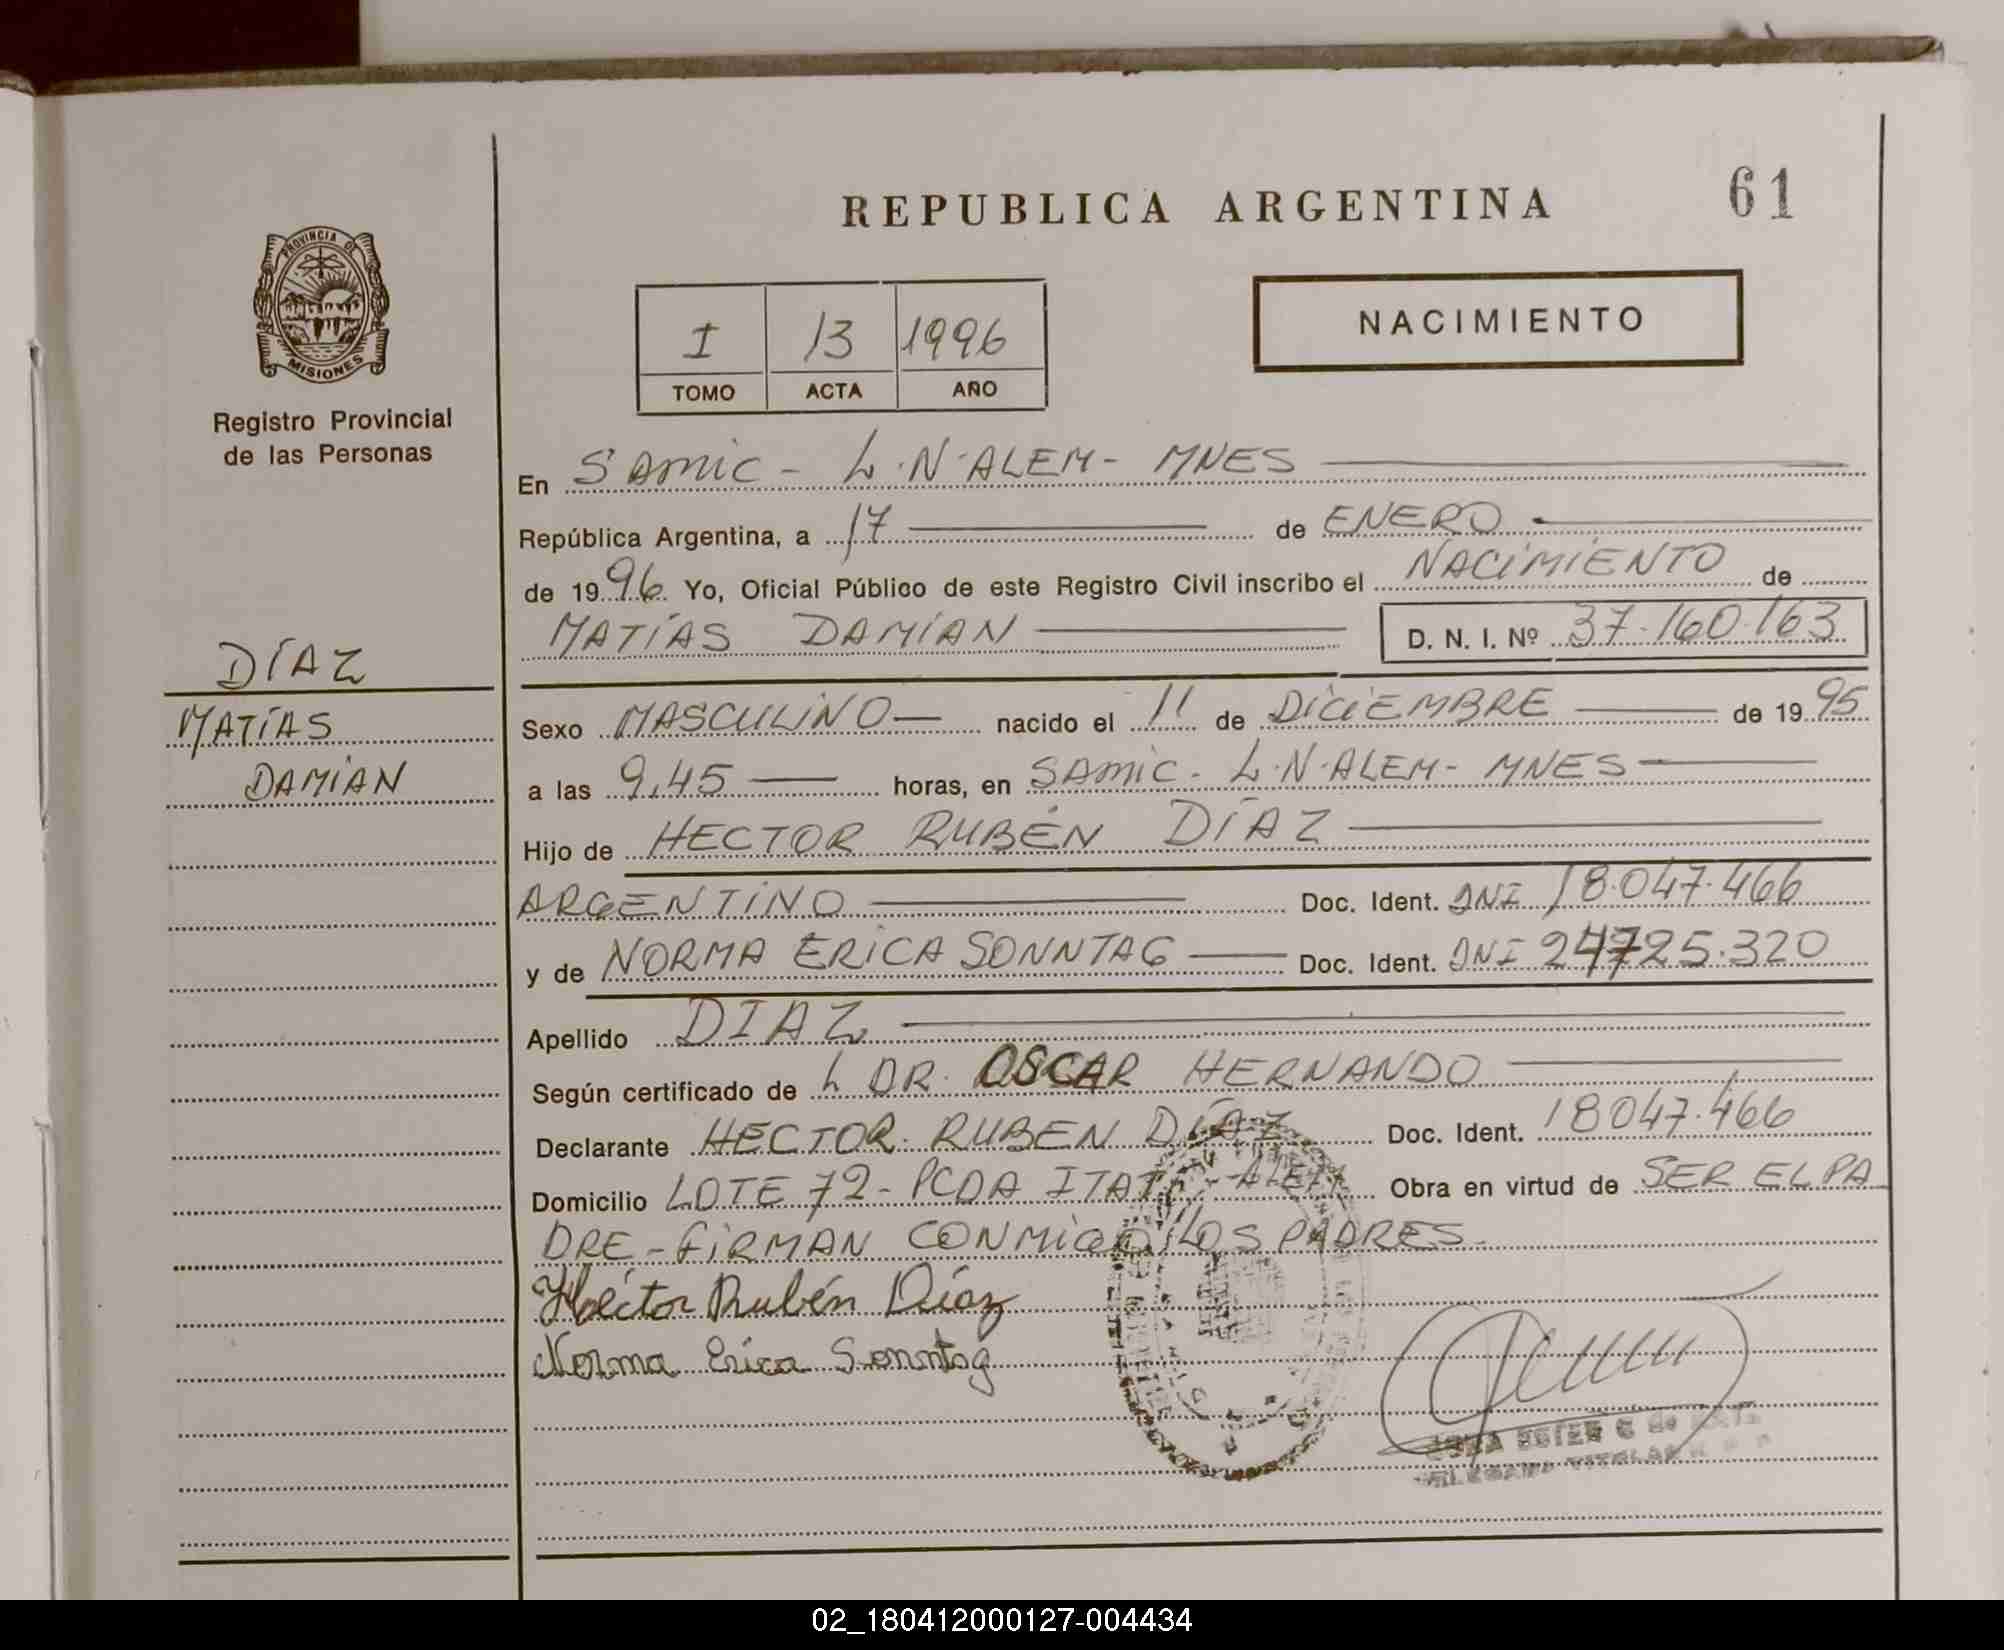 REPUBLICA ARGENTINA
61
PROVINCIA DE
MISIONES
Registro Provincial
de las Personas
I 13 1996
TOMO ACTA AÑO
NACIMIENTO
DÍAZ
MATÍAS
DAMIAN
En SAMIC - L.N.ALEM - MNES
República Argentina, a 17 de ENERO
de 1996 Yo, Oficial Público de este Registro Civil inscribo el NACIMIENTO de
MATÍAS DAMIAN D. N. I. Nº 37.160.163
Sexo MASCULINO nacido el 11 de DICIEMBRE de 1995
a las 9,45 horas, en SAMIC - L.N.ALEM - MNES
Hijo de HECTOR RUBÉN DÍAZ
ARGENTINO Doc. Ident. DNI 18.047.466
y de NORMA ERICA SONNTAG Doc. Ident. DNI 24725.320
Apellido DIAZ
Según certificado de L DR. OSCAR HERNANDO
Declarante HECTOR RUBEN DÍAZ Doc. Ident. 18047.466
Domicilio LOTE 72 - PCDA ITATI - ALEM Obra en virtud de SER EL PA
DRE - FIRMAN CONMIGO LOS PADRES
Héctor Rubén Díaz
Norma Erica Sonntag
02_180412000127-004434